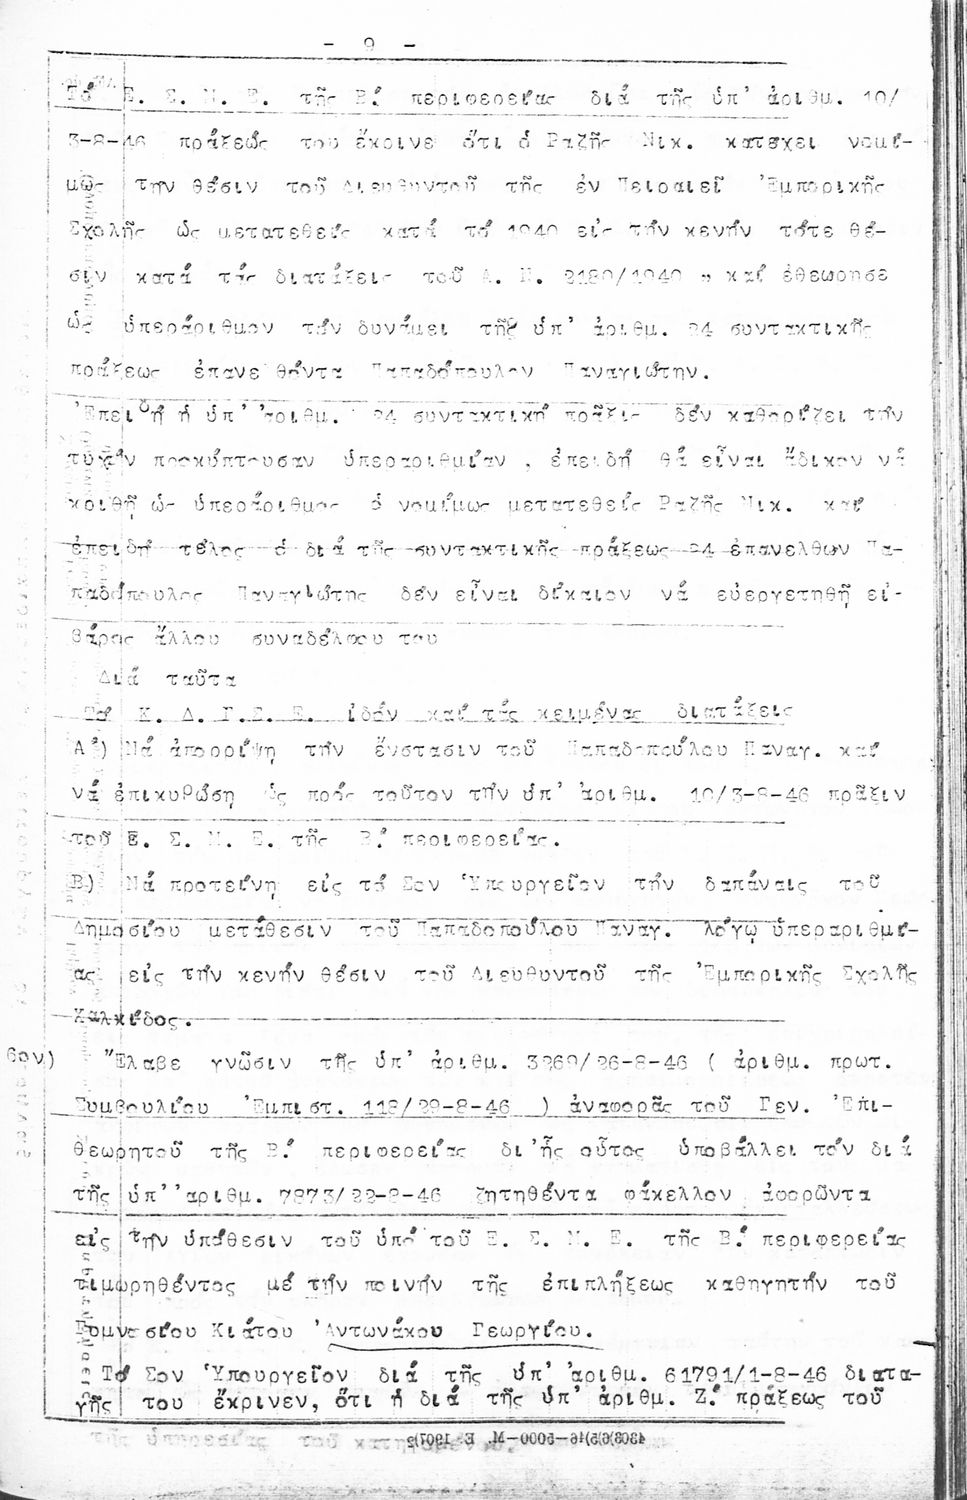 - 9 -
Τό Ε. Σ. Μ. Ε. τῆς Β.' περιφερείας διά τῆς ὑπ' ἀριθμ. 10/
3-8-46 πράξεώς του ἔκρινε ὅτι ὁ Ραζῆς Νικ. κατέχει νομί-
μως την θέσιν τοῦ Διευθυντοῦ τῆς ἐν Πειραιεῖ Ἐμπορικῆς
Σχολῆς ὡς μετατεθείς κατά τό 1940 εἰς τήν κενήν τότε θέ-
σιν κατά τάς διατάξεις τοῦ Α. Ν. 2180/1940 " καί ἐθεώρησε
ὡς ὑπεράριθμον τόν δυνάμει τῆς ὑπ' ἀριθμ. 24 συντακτικῆς
πράξεως ἐπανελθόντα Παπαδόπουλον Παναγιώτην.
Ἐπειδή ἡ ὑπ' ἀριθμ. 24 συντακτική πρᾶξις δέν καθορίζει τήν
τυχόν προκύπτουσαν ὑπεραριθμίαν , ἐπειδή θά εἶναι ἄδικον νά
κριθῆ ὡς ὑπεράριθμος ὁ νομίμως μετατεθείς Ραζῆς Νικ. καί
ἐπειδή τέλος ὁ διά τῆς συντακτικῆς πράξεως 24 ἐπανελθων Πα-
παδόπουλος Παναγιώτης δέν εἶναι δίκαιον νά εὐεργετηθῆ εἰς
βάρος ἄλλου συναδέλφου του
Διά ταῦτα
Τό Κ. Δ. Γ. Σ. Ε. ἰδόν καί τάς κειμένας διατάξεις
Α') Νά ἀπορρίψη τήν ἔνστασιν τοῦ Παπαδοπούλου Παναγ. καί
νά ἐπικυρώση ὡς πρός τοῦτον τήν ὑπ' ἀριθμ. 10/3-8-46 πρᾶξιν
τοῦ Ε. Σ. Μ. Ε. τῆς Β.' περιφερείας.
Β) Νά προτείνη εἰς τό Σον Ὑπουργεῖον τήν δαπάναις τοῦ
Δημοσίου μετάθεσιν τοῦ Παπαδοπούλου Παναγ. λόγῳ ὑπεραριθμί-
ας εἰς τήν κενήν θέσιν τοῦ Διευθυντοῦ τῆς Ἐμπορικῆς Σχολῆς
Χαλκίδος.
6ον) Ἔλαβε γνῶσιν τῆς ὑπ' ἀριθμ. 3269/26-8-46 ( ἀριθμ. πρωτ.
Συμβουλίου Ἐμπιστ. 118/29-8-46 ) ἀναφορᾶς τοῦ Γεν. Ἐπι-
θεωρητοῦ τῆς Β.' περιφερείας δι' ἧς οὗτος ὑποβάλλει τόν διά
τῆς ὑπ' ἀριθμ. 7873/22-8-46 ζητηθέντα φάκελλον ἀφορῶντα
εἰς τήν ὑπόθεσιν τοῦ ὑπό τοῦ Ε. Σ. Μ. Ε. τῆς Β.' περιφερείας
τιμωρηθέντος μέ τήν ποινήν τῆς ἐπιπλήξεως καθηγητήν τοῦ
Γυμνασίου Κιάτου Ἀντωνάκου Γεωργίου.
Τό Σον Ὑπουργεῖον διά τῆς ὑπ' ἀριθμ. 61791/1-8-46 διατα-
γῆς του ἔκρινεν, ὅτι ἡ διά τῆς ὑπ' ἀριθμ. Ζ.' πράξεως τοῦ